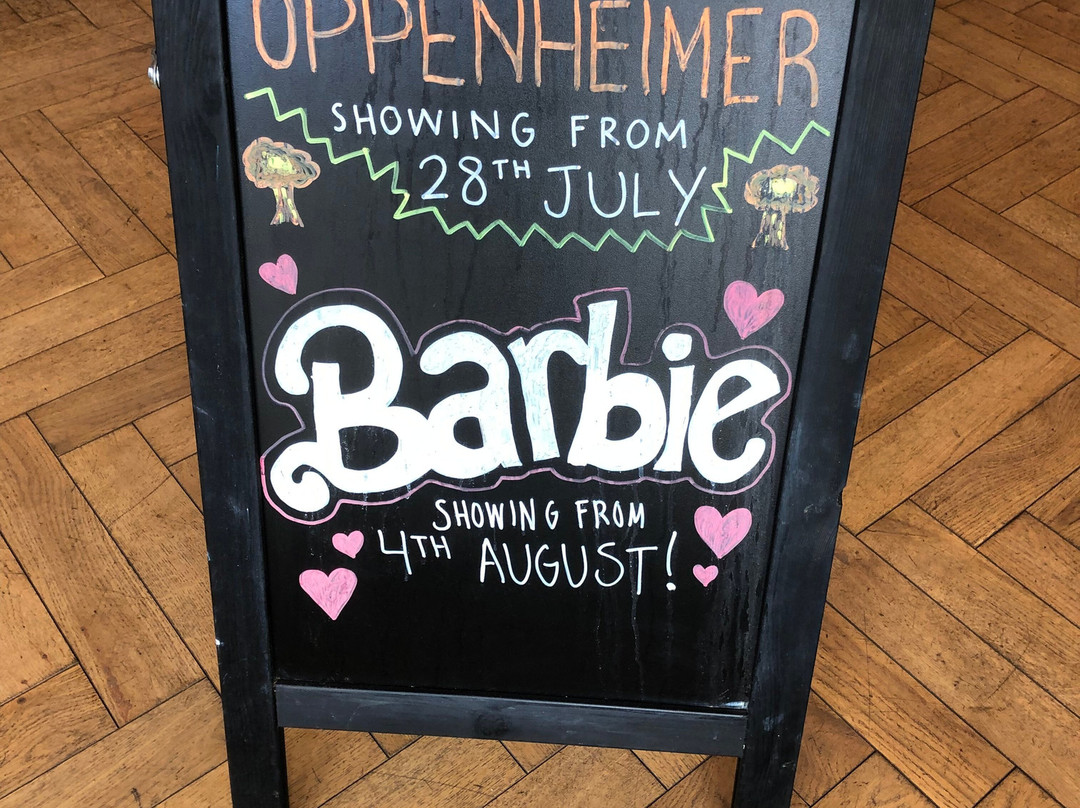 OPPENHEIMER
SHOWING FROM
28TH JULY
Barbie
SHOWING FROM
4TH AUGUST!